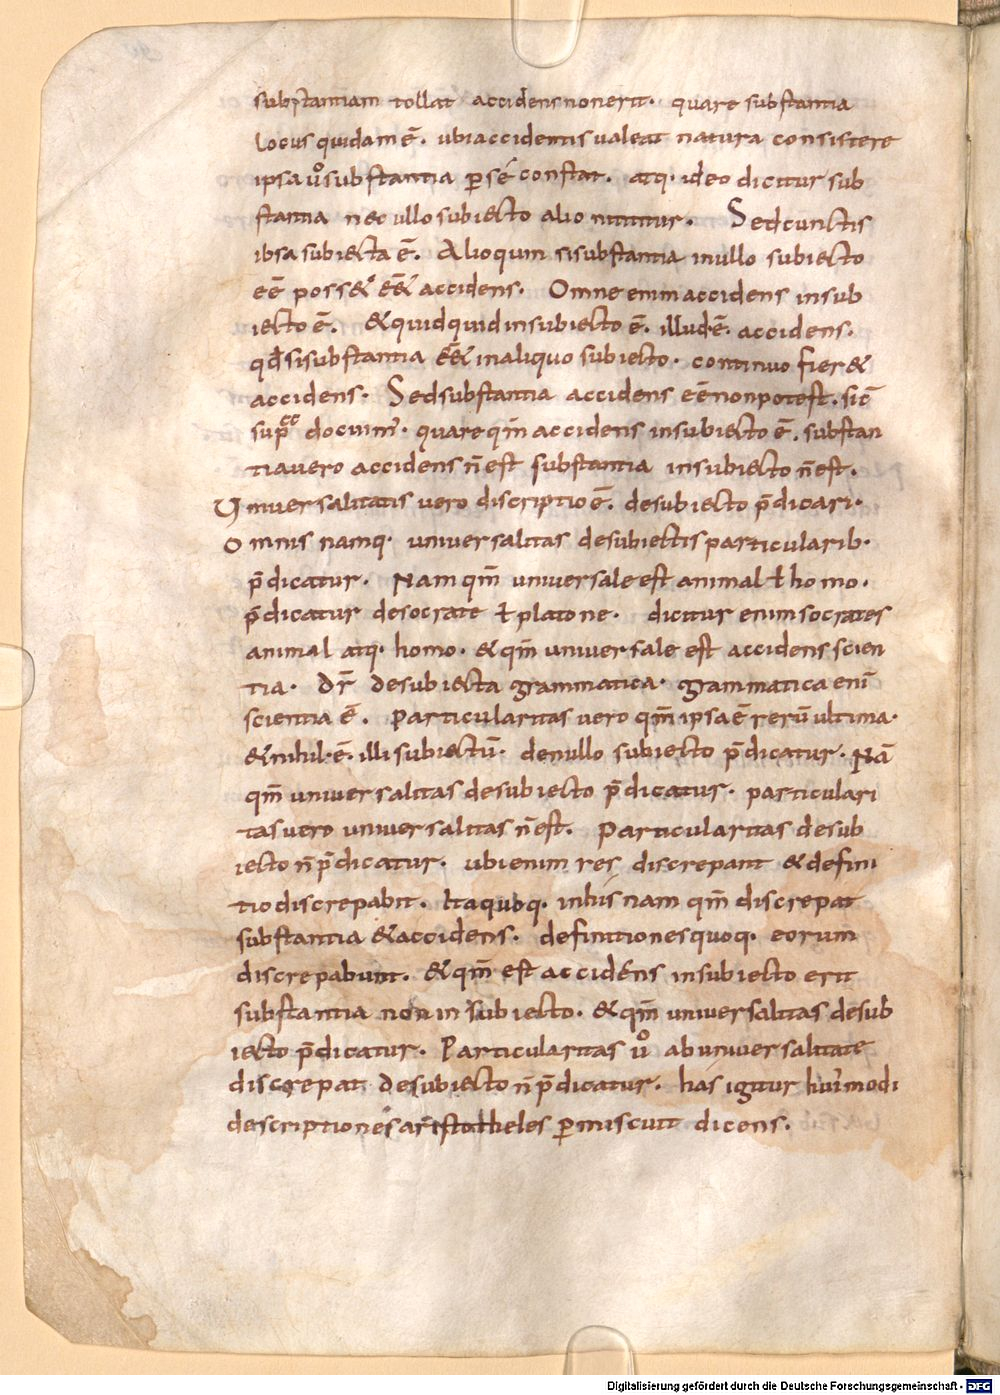 substantiam tollat accidens non erit. quare substantia
locus quidam ē. ubi accidentis valeat natura consistere
ipsa ů substantia p̱ sé constat. atq. ideo dicitur sub
stantia nec ullo subiecto alio nititur. Sed cunctis
ibsa subiecta ē. Alioqum si substantia in ullo subiecto
eē posset eēt accidens. Omne enim accidens in sub
iecto ē. & quid quid in subiecto ē. illud ē. accidens.
qđ si substantia eē& in aliquo subiecto. continuo fier&
accidens. Sed substantia accidens eē non potest. sic̄
sup̄ docuim'. quare qm̄ accidens in subiecto ē. substan
tia vero accidens n̄ est substantia in subiecto n̄ est.
Universalitatis vero discriptio ē. de subiecto p̄dicari.
Omnis namq. universalitas de subiectis particularib.
p̄dicatur. Nam qm̄ universale est animal ł homo.
p̄dicatur de socrate ł platone. dicitur enim socrates
animal atq. homo. & qm̄ universale est accidens scien
tia. dr̄ de subiecta grammatica. grammatica enī
scientia ē. Particularitas vero qm̄ ipsa ē rerū ultima.
& nihil ē. illi subiectū. de nullo subiecto p̄dicatur. Nā
qm̄ universalitas de subiecto p̄dicatur. particulari
tas vero universalitas n̄ est. Particularitas de sub
iecto n̄ p̄dicatur. ubi enim res discrepant & defini
tio discrepabit. Itaq. ubq. in his nam qm̄ discrepat
substantia & accidens. definitiones quoq. eorum
discrepabunt. & qm̄ est accidens in subiecto erit
substantia non in subiecto. & qm̄ universalitas de sub
iecto p̄dicatur. Particularitas ů ab universalitate
discrepat de subiecto n̄ p̄dicatur. has igitur hui'modi
descriptiones aristotheles p̱miscuit dicens.
Digitalisierung gefördert durch die Deutsche Forschungsgemeinschaft - DFG